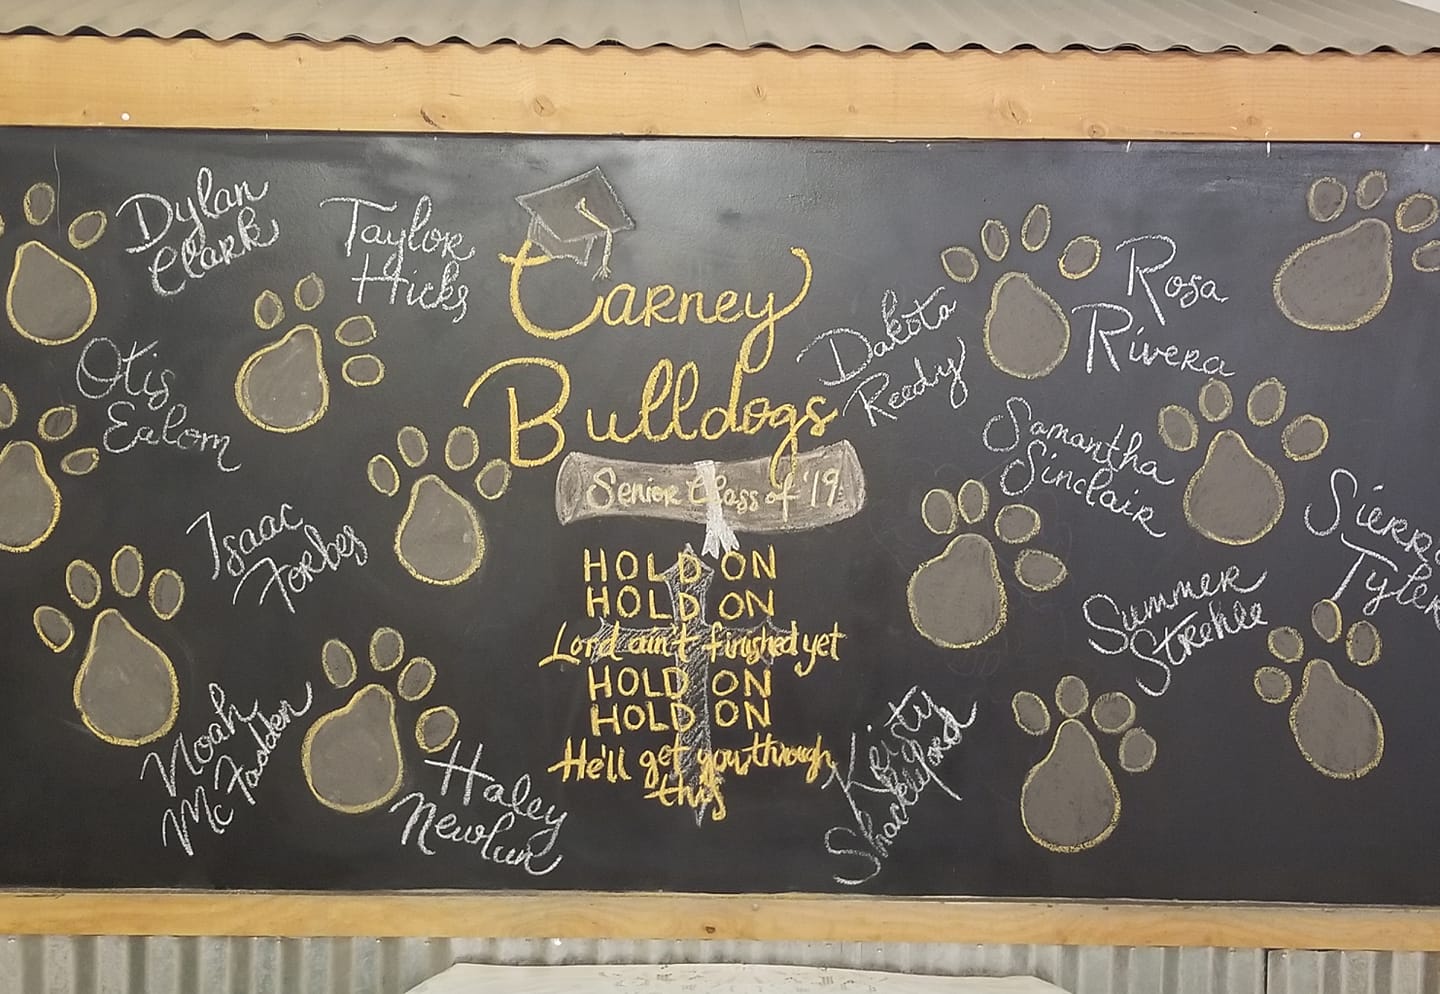 Dylan
Clark
Taylor
Hicks
Otis
Ealom
Isaac
Forbes
Noah
McFadden
Haley
Newlun
Carney
Bulldogs
Senior Class of '19
HOLD ON
HOLD ON
Lord ain't finished yet
HOLD ON
HOLD ON
He'll get you through
this
Dakota
Reedy
Rosa
Rivera
Samantha
Sinclair
Sierra
Tyler
Summer
Strehle
Keisty
Shackleford